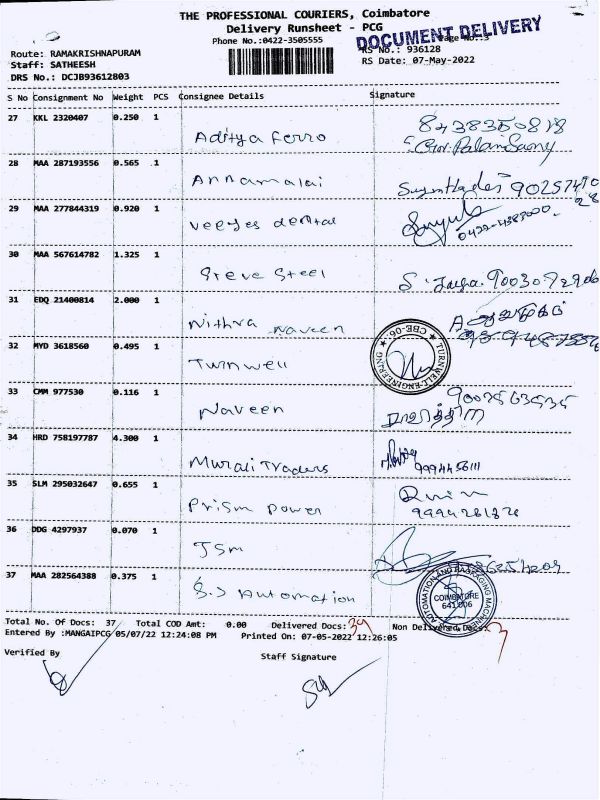 THE PROFESSIONAL COURIERS, Coimbatore
Delivery Runsheet - PCG
Phone No.:0422-3505555
DOCUMENT DELIVERY
Page No.:3
Route: RAMAKRISHNAPURAM
RS No.: 936128
Staff: SATHEESH
RS Date: 07-May-2022
DRS No.: DCJB93612803
S No Consignment No Weight PCS Consignee Details Signature
27 KKL 2320407 0.250 1
Aditya Ferro 8438350818
28 MAA 287193556 0.565 1
Annamalai
29 MAA 277844319 0.920 1
Veeyes dental
30 MAA 567614782 1.325 1
Steve Steel
31 EDQ 21400814 2.000 1
Nithra Naveen
32 MYD 3618560 0.495 1
Turnwell
TURNWELL ENGINEERING CBE-06
33 CMM 977530 0.116 1
Naveen
34 HRD 758197787 4.300 1
Murali Traders
9994456111
35 SLM 295032647 0.655 1
Prism power
36 DDG 4297937 0.070 1
JSM
37 MAA 282564388 0.375 1
S.J Automation
COIMBATORE
641 006
Total No. Of Docs: 37 Total COD Amt: 0.00 Delivered Docs: 34 Non Delivered Docs: 3
Entered By :MANGAIPCG 05/07/22 12:24:08 PM Printed On: 07-05-2022 12:26:05
Verified By
Staff Signature